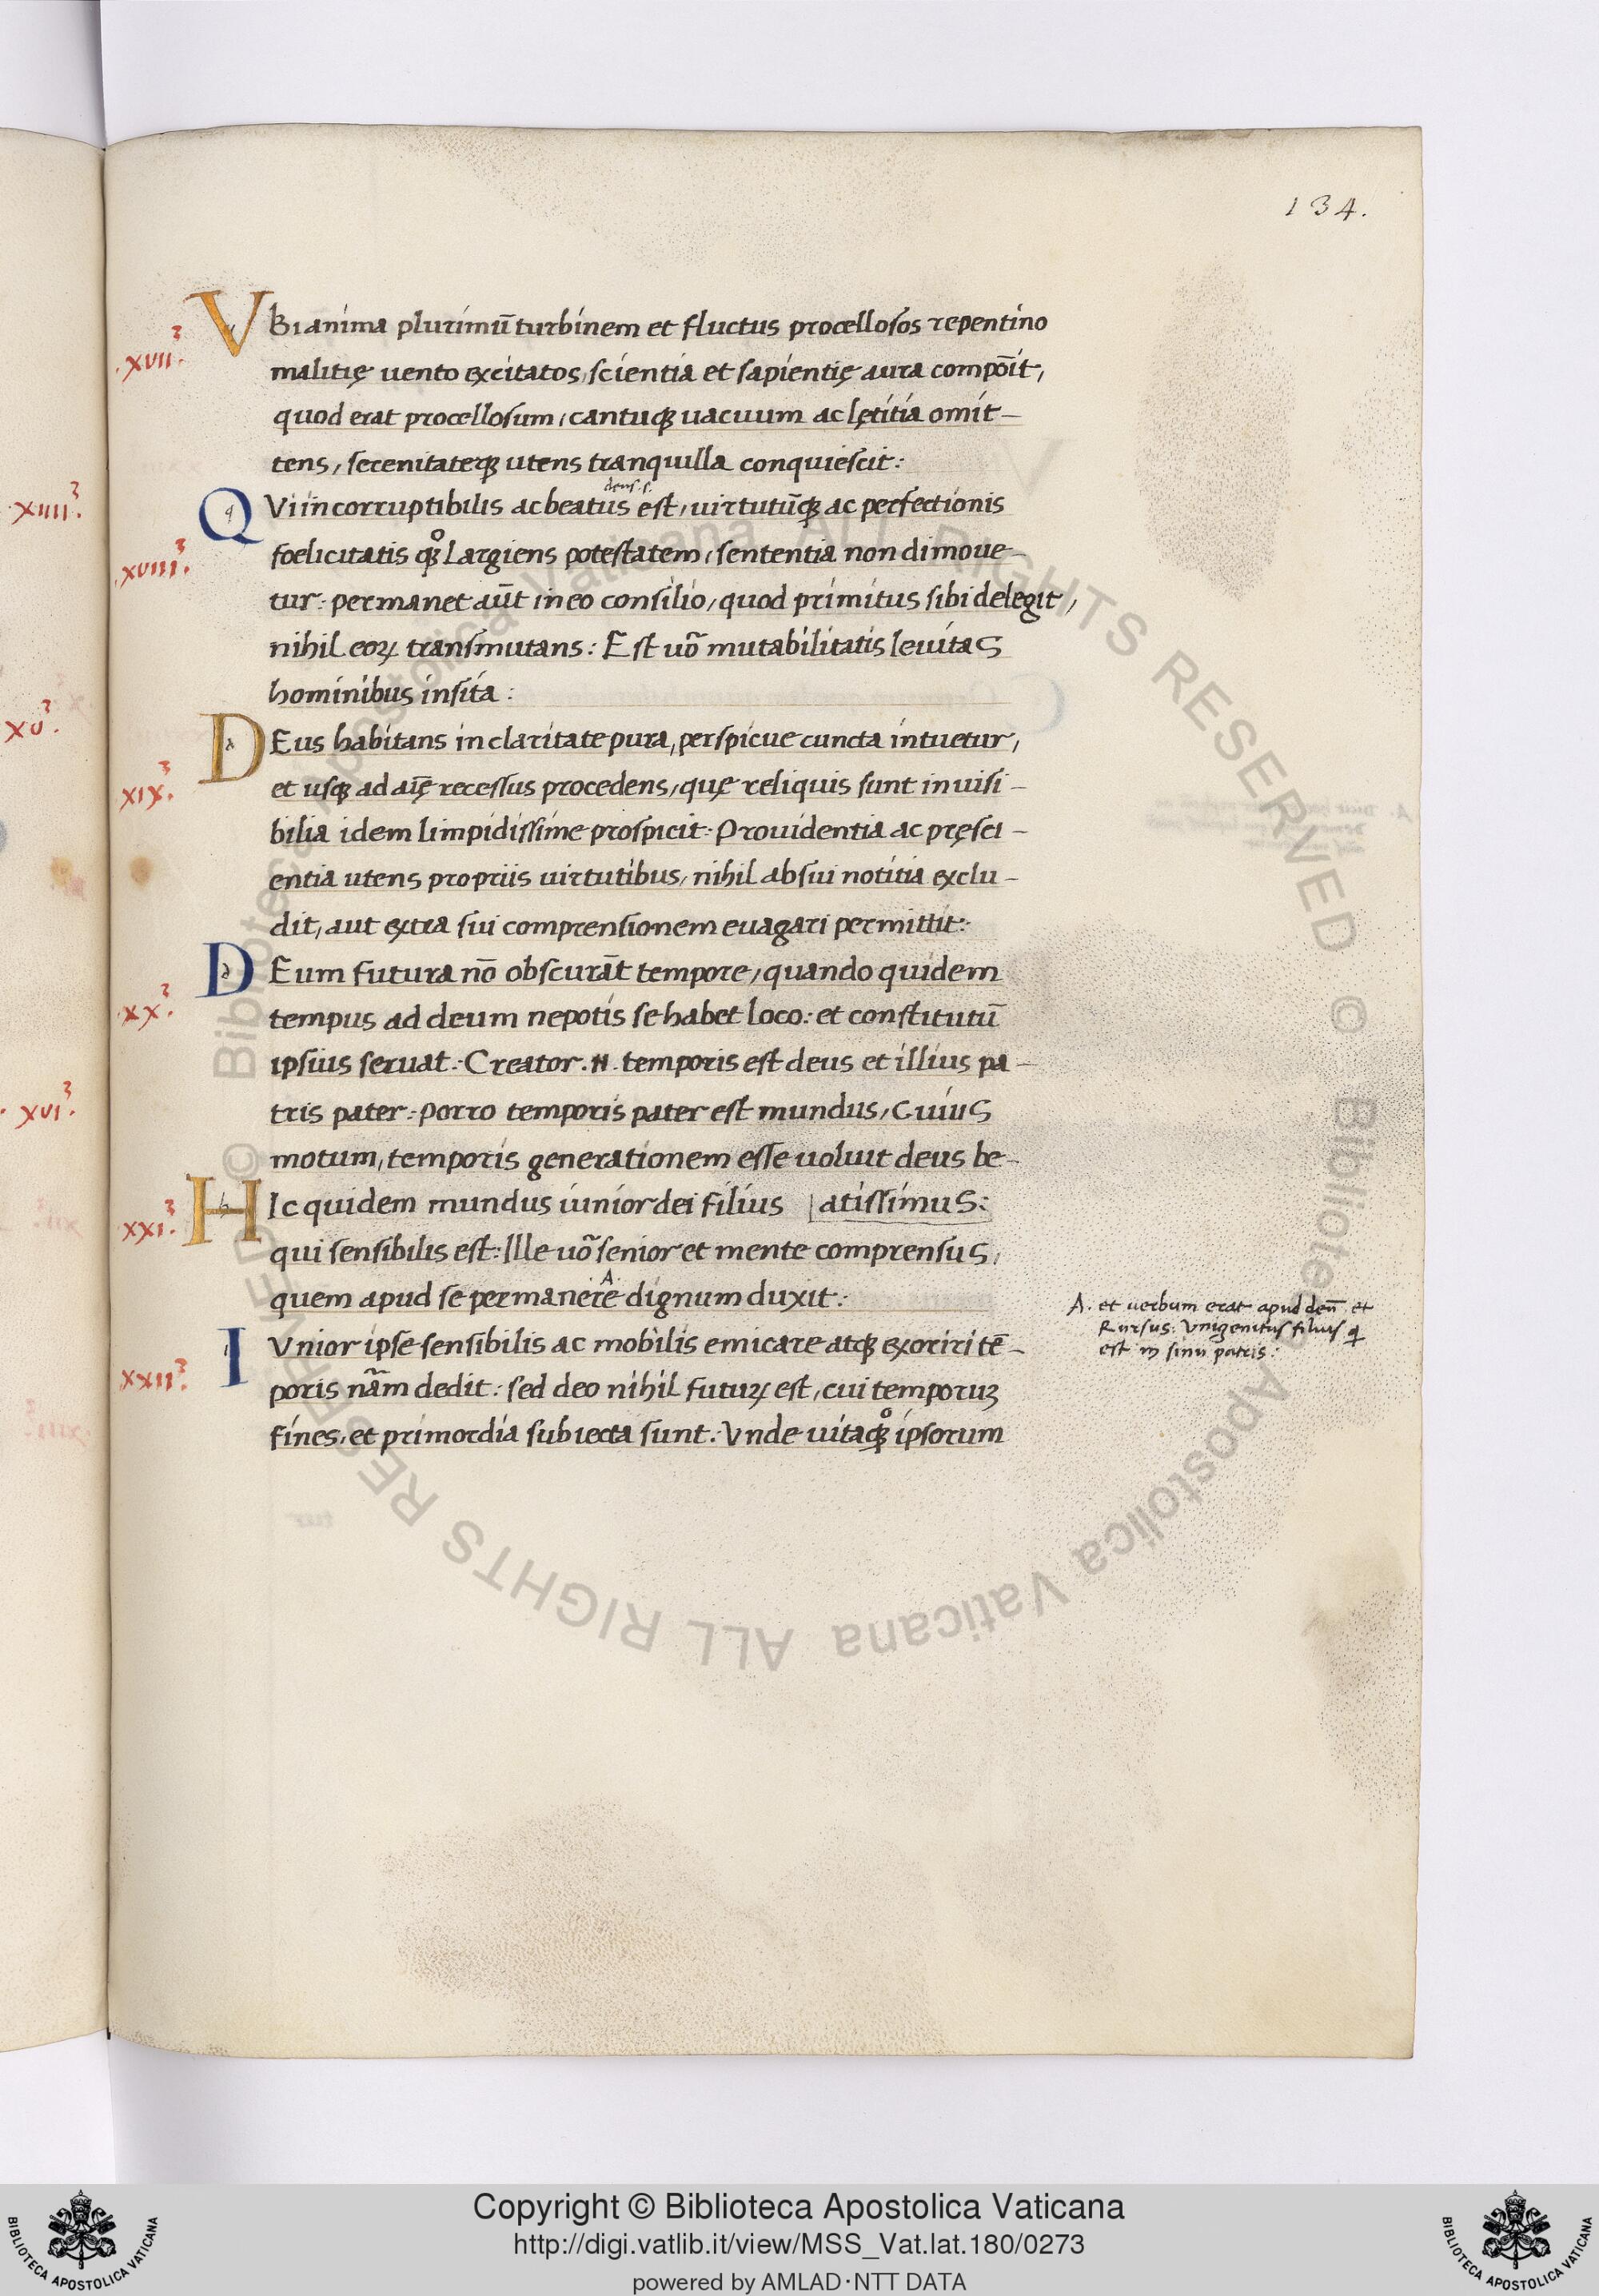 134.
.xvii.³
VBI anima plurimū turbinem et fluctus procellosos repentino
malitię uento excitatos, scientia et sapientię aura compōit,
quod erat procellosum, cantuqȝ uacuum ac lętitia omit-
tens, serenitateqȝ utens tranquilla conquiescit:
deus .s.
.xviii.³
QVi incorruptibilis ac beatus est, uirtutūqȝ ac perfectionis
foelicitatis qȝ° largiens potestatem, sententia non dimoue-
tur: permanet aūt in eo consilio, quod primitus sibi delegit,
nihil eoꝝ transmutans: Est uō mutabilitatis leuitas
hominibus insita:
xix.³
DEus habitans in claritate pura, perspicue cuncta intuetur,
et usqȝ ad aīę recessus procedens, quę reliquis sunt inuisi-
bilia idem limpidissime prospicit: Prouidentia ac pręsci-
entia utens propriis uirtutibus, nihil ab sui notitia exclu-
dit, aut extra sui comprensionem euagari permittit:
.xx.³
DEum futura nō obscurāt tempore, quando quidem
tempus ad deum nepotis se habet loco: et constitutū
ipsius seruat: Creator .N. temporis est deus et illius pa-
tris pater: porro temporis pater est mundus, cuius
motum, temporis generationem esse uoluit deus be-
xxi.³
HIc quidem mundus iunior dei filius | atissimus:
qui sensibilis est: Ille uō senior et mente comprensus,
.A.
quem apud se permanere dignum duxit:
A. et uerbum erat apud deū, et
Rursus: Vnigenitus filius q
est in sinu patris:
xxii.³
IVnior ipse sensibilis ac mobilis emicare atqȝ exoriri tē-
poris nāam dedit: sed deo nihil futuꝝ est, cui temporuȝ
fines, et primordia subiecta sunt: Vnde uitaqȝ° ipsorum
.xiiii.³
xv.³
.xvi.³
© Biblioteca Apostolica Vaticana ALL RIGHTS RESERVED © Biblioteca Apostolica Vaticana ALL RIGHTS RESERVED
Copyright © Biblioteca Apostolica Vaticana
http://digi.vatlib.it/view/MSS_Vat.lat.180/0273
powered by AMLAD·NTT DATA
BIBLIOTECA APOSTOLICA VATICANA
BIBLIOTECA APOSTOLICA VATICANA